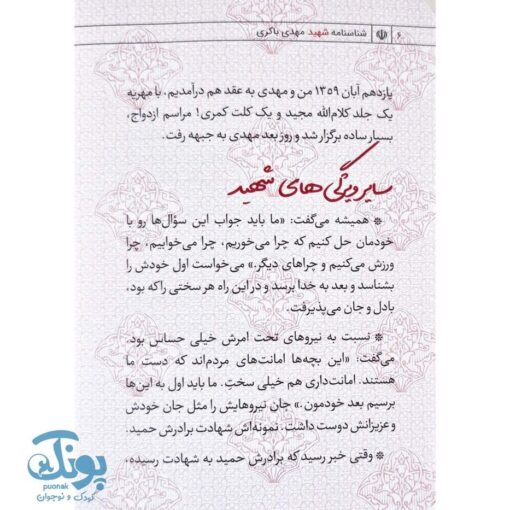 ۶ | شناسنامه شهید مهدی باکری
یازدهم آبان ۱۳۵۹ من و مهدی به عقد هم درآمدیم. با مهریه
یک جلد کلام‌الله مجید و یک کلت کمری! مراسم ازدواج،
بسیار ساده برگزار شد و روز بعد مهدی به جبهه رفت.
سایر ویژگی های شهید
* همیشه می‌گفت: «ما باید جواب این سؤال‌ها رو با
خودمان حل کنیم که چرا می‌خوریم، چرا می‌خوابیم، چرا
ورزش می‌کنیم و چراهای دیگر.» می‌خواست اول خودش را
بشناسد و بعد به خدا برسد و در این راه هر سختی را که بود،
با دل و جان می‌پذیرفت.
* نسبت به نیروهای تحت امرش خیلی حساس بود.
می‌گفت: «این بچه‌ها امانت‌های مردم‌اند که دست ما
هستند. امانت‌داری هم خیلی سختِ. ما باید اول به این‌ها
برسیم بعد خودمون.» جان نیروهایش را مثل جان خودش
و عزیزانش دوست داشت. نمونه‌اش شهادت برادرش حمید.
* وقتی خبر رسید که برادرش حمید به شهادت رسیده،
پونک
puonak
کودک و نوجوان